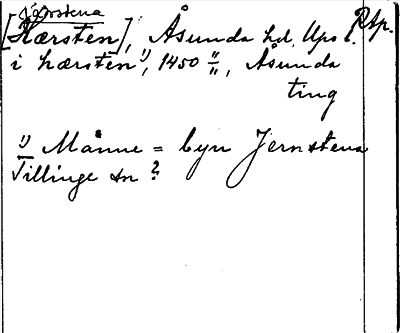 Järstena
[Hærsten], Åsunda hd. Ups l. Rtp.
i hærsten 1), 1450 11/11, Åsunda
ting
1) Månne = byn Jernstena
Tillinge sn ?